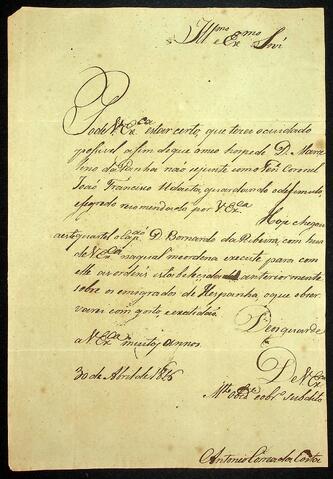 Ill.mo e Ex.mo Snr
Pode V Ex.ca estar certo, que terei o cuidado
posivel afim de que o meo hospede D. Marce
lino da Panha não se junte com o Ten. Coronel
João Francisco Udaeta, guardando o de
segredo recomendado por V Ex.ca
Hoje chegou
a este quartel o cap.ão D. Bernardo da Ribeira, com huma
de V Ex.ca na qual me ordena execute para com
elle as ordens estabelecidas anteriormente
sobre os emigrados de Hespanha, o que obser
varei com gosto, e exatidão.
Deos guarde
a V Ex.ca muitos annos.
30 de Abril de 1826
De V Ex.ca
Mto obed.e e obr.o subdito
Antonio Correa da Costa